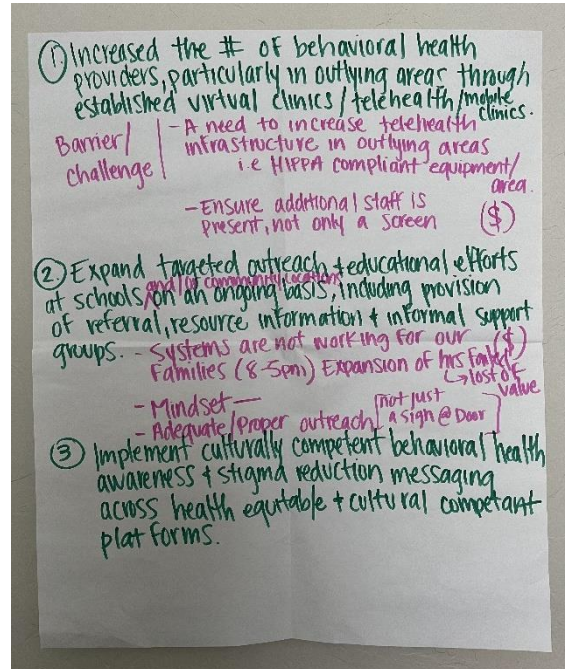 ① Increased the # of behavioral health
providers, particularly in outlying areas through
established virtual clinics/telehealth/mobile
clinics.
Barrier/
challenge
- A need to increase telehealth
infrastructure in outlying areas
i.e HIPPA compliant equipment/
area.
- Ensure additional staff is
present, not only a screen ($)
② Expand targeted outreach + educational efforts
and/or community locations
at schools, on an ongoing basis, including provision
of referral, resource information + informal support
groups. - Systems are not working for our ($)
Families (8-5pm) Expansion of hrs Failed
↳ lost of value
- Mindset—
- Adequate/Proper outreach [not just
a sign @ Door]
③ Implement culturally competent behavioral health
awareness + stigma reduction messaging
across health equitable + cultural competant
platforms.